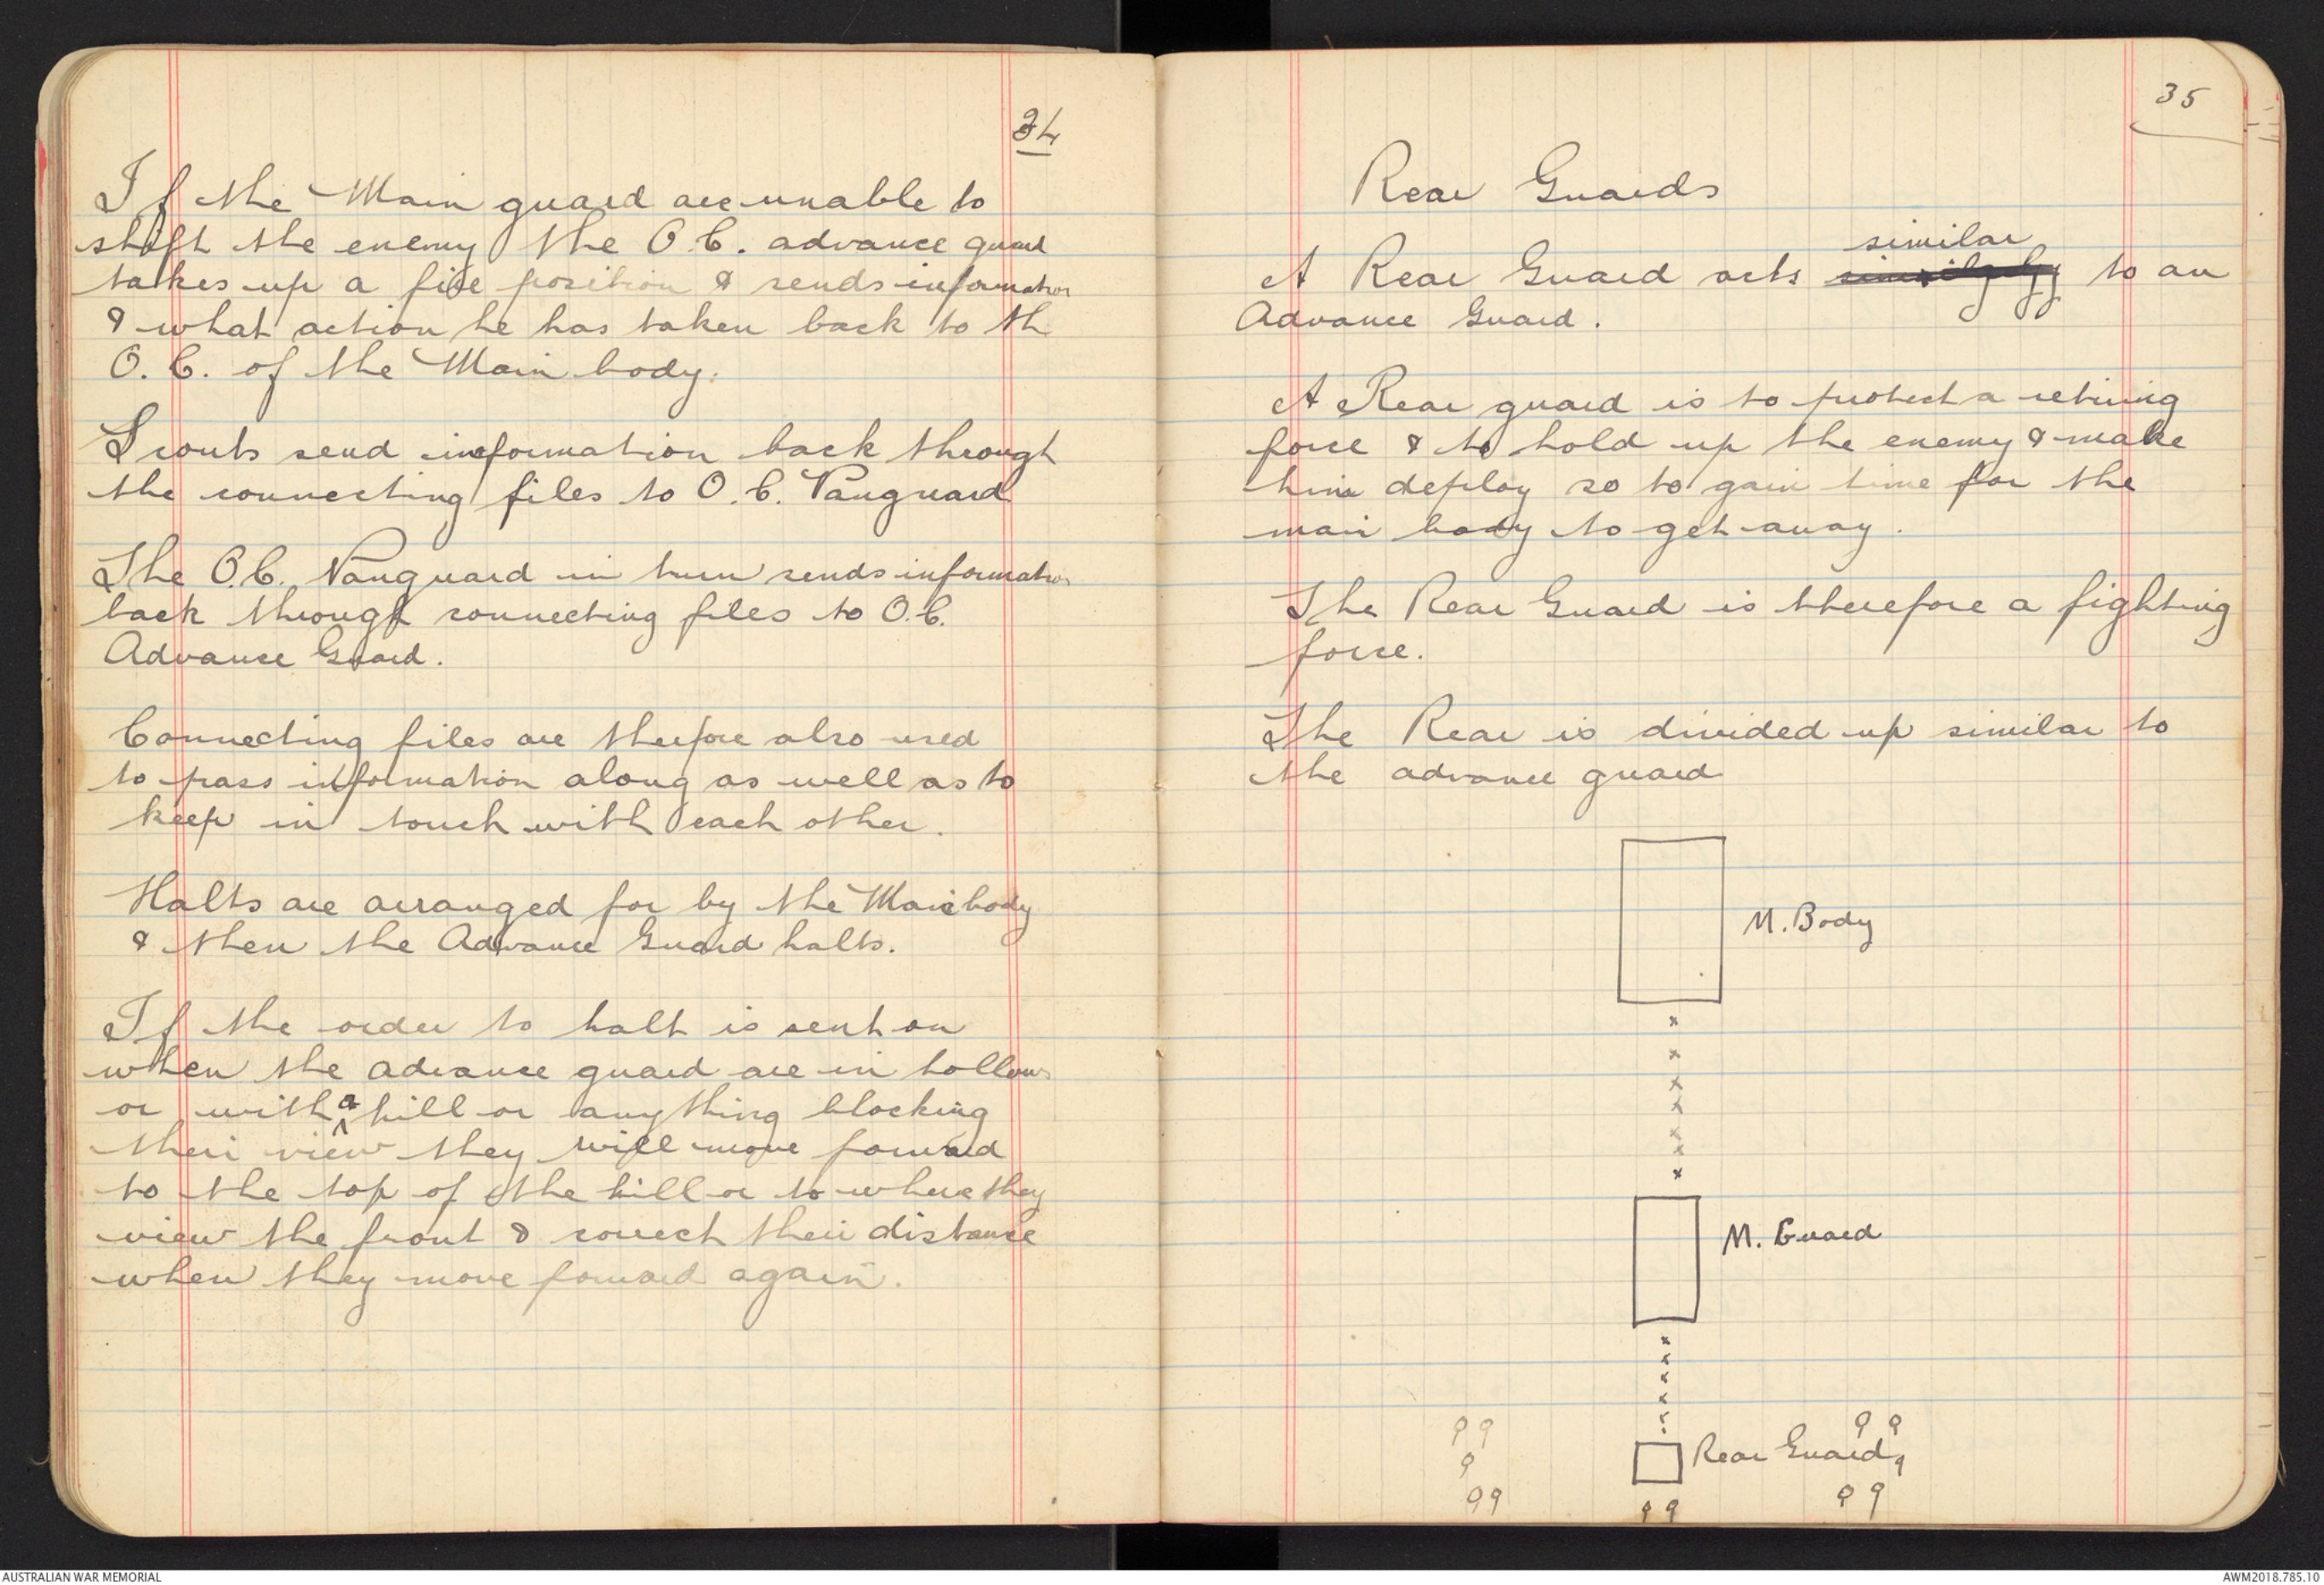 34
If the Main guard are unable to
shift the enemy the O.C. advance guard
takes up a fire position & sends information
& what action he has taken back to th
O.C. of the Main body.
Scouts send information back through
the connecting files to O.C. Vanguard
The O.C. Vanguard in turn sends information
back through connecting files to O.C.
Advance Guard.
Connecting files are therfore also used
to pass information along as well as to
keep in touch with each other.
Halts are arranged for by the Main body
& then the Advance Guard halts.
If the order to halt is sent on
when the advance guard are in hollows
or with a hill or anything blocking
their view they will move forward
to the top of the hill or to where they
view the front & correct their distance
when they move forward again.
35
Rear Guards
similar
A Rear Guard acts similarly to an
Advance Guard.
A Rear guard is to protect a retiring
force & to hold up the enemy & make
him deploy so to gain time for the
main body to get away.
The Rear Guard is therefore a fighting
force.
The Rear is divided up similar to
the advance guard
M. Body
M. Guard
Rear Guard
AUSTRALIAN WAR MEMORIAL
AWM2018.785.10